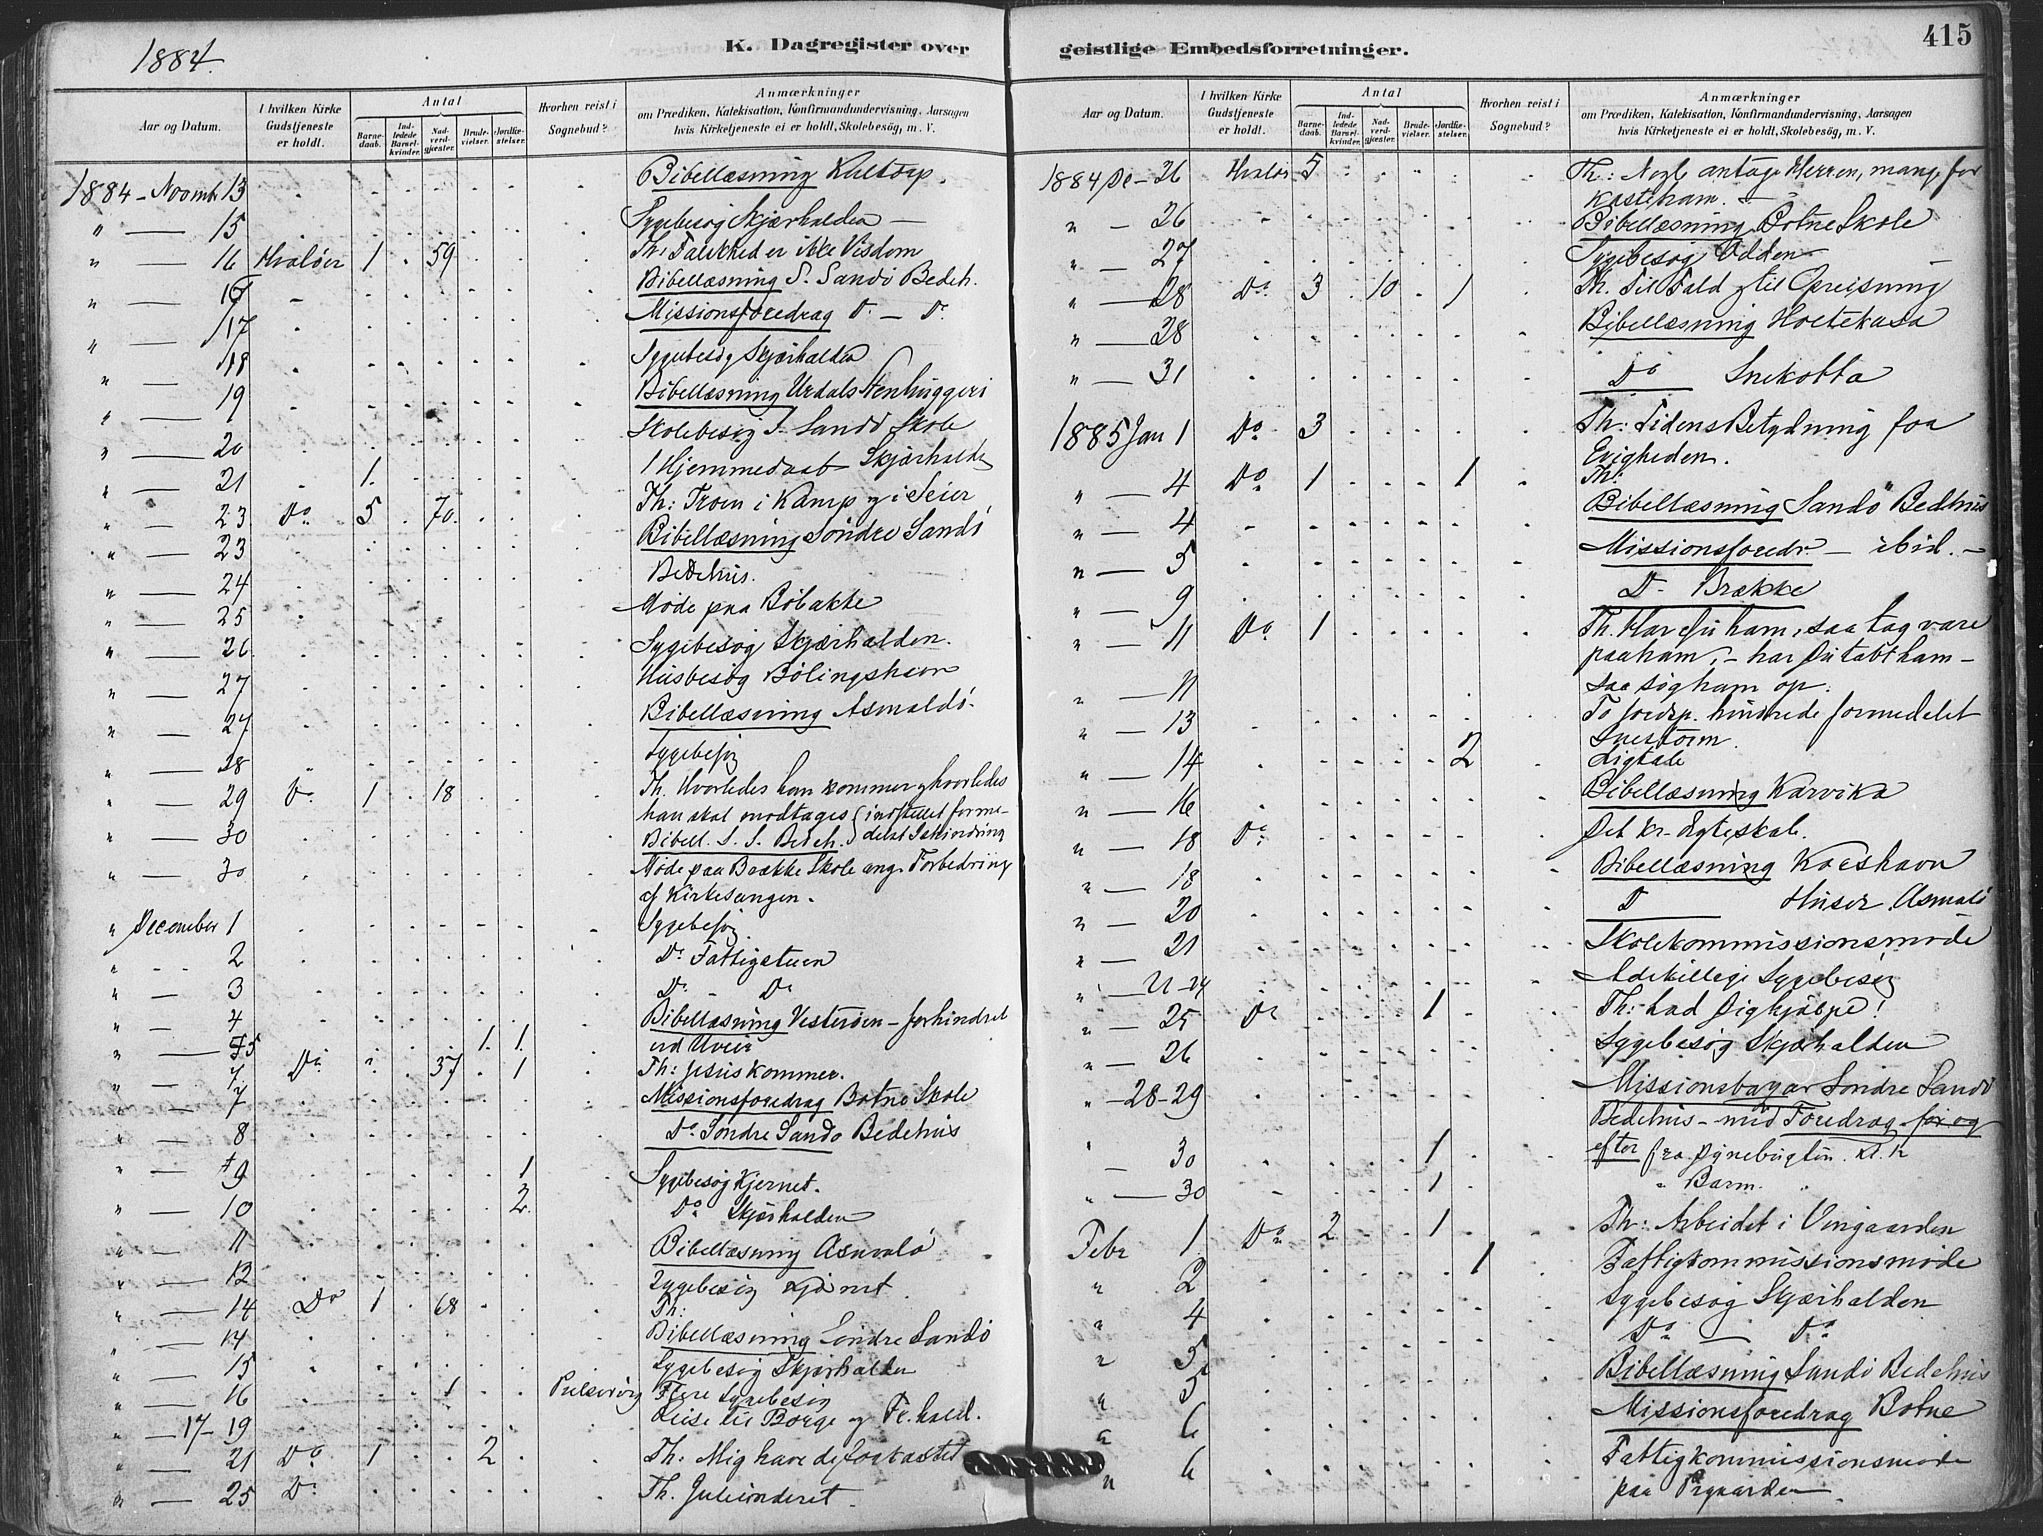 1884.
K. Dagregister over
geistlige Embedsforretninger.
415
Aar og Datum.
I hvilken Kirke Gudstjeneste er holdt.
Antal
Barnedaab.
Indledede Barselkvinder.
Nadverdgjæster.
Brudevielser.
Jordfæstelser.
Hvorhen reist i Sognebud?
Anmærkninger
om Prædiken, Katekisation, Konfirmandundervisning, Aarsagen
hvis Kirketjeneste ei er holdt, Skolebesøg, m. V.
1884 - Novmb. 13 Bibellæsning
" — 15 Sygebesøg Skjærhalden —
" — 16 Hvaløer 1 59 Th: Falskhed er ikke Visdom
" — 16 Bibellæsning S. Sandö Bedeh.
" — 17 Missionsforedrag Do — Do
" — 18 Sygebesøg Skjærhalden
" — 19 Bibellæsning Urdals Stenhuggeri
" — 20 Skolebesøg S. Sandö Skole
" — 21 1 1 Hjemmedaab Skjærhalden
" — 23 Do 5 70 Th: Troen i Kamp og i Seier
" — 23 Bibellæsning Söndre Sandö
Bedehus.
" — 24 Møde paa
" — 25 Sygebesøg Skjærhalden.
" — 26 Husbesøg
" — 27 Bibellæsning Asmalö.
" — 27
" — 28 Sygebesøg
" — 29 Do 1 18 Th. Hvorledes han kommer og hvorledes
han skal modtages (indstillet forme-
" — 30 Bibell. S. S. Bedeh.
" — 30 Møde paa Brække Skole ang. Forbedring
af Kirkesangen.
" December 1 Sygebesøg
" — 2 Do Fattigstuen
" — 3 Do Do
" — 4 Bibellæsning Vesterøen — forhindret
ved Uveir
" — 5 1 1
" — 7 Do 37 1 Th: Jesus kommer.
" — 7 Missionsforedrag Botne Skole
" — 8 Do Söndre Sandö Bedehus
" — 9 1 Sygebesøg Kjernet.
" — 10 2 Do Skjærhalden
" — 11 Bibellæsning Asmalö
" — 12 Sygebesøg
" — 14 Do 1 68 Th:
" — 14 Bibellæsning Söndre Sandö
" — 15 Sygebesøg Skjærhalden
" — 16 1 Flere Sygebesøg
" — 17-19 Reise til Borge og Fr.hald.
" — 21 Do 1 2 Th: Mig have de forkastet
" — 25 Do Th. Juleunderet.
Aar og Datum.
I hvilken Kirke Gudstjeneste er holdt.
Antal
Barnedaab.
Indledede Barselkvinder.
Nadverdgjæster.
Brudevielser.
Jordfæstelser.
Hvorhen reist i Sognebud?
Anmærkninger
om Prædiken, Katekisation, Konfirmandundervisning, Aarsagen
hvis Kirketjeneste ei er holdt, Skolebesøg, m. V.
1884 De — 26 Hvaløer 5 Th: Nogle antage Herren, mange for
kaste ham. —
" — 26 Bibellæsning Botne Skole
" — 27 Sygebesøg Odden —
" — 28 Do 3 10 1 Th. Til Fald og til Opreisning
" — 28 Bibellæsning
" — 31 Do Snekotta
1885 Jan 1 Do 3 Th: Tidens Betydning for
Evigheden.
" — 4 Do 1 1 Th:
" — 4 Bibellæsning Sandö Bedehus
" — 5 Missionsforedr — ibid. —
" — 9 Do Brække
" — 11 Do 1 Th. Har du ham, saa tag vare
paa ham, — har du tabt ham —
saa søg ham op.
" — 11 To hindrede formedelst
" — 13 Snestorm.
" — 14 2 Ligtale
" — 16 Bibellæsning
" — 18 Do Det kr. Ægteskab.
" — 18 Bibellæsning
" — 20 Do Huser Asmalö
" — 21 Skolekommissionsmøde
" — 21-24 Adskillige Sygebesøg
" — 25 Do 1 Th: Lad dig hjælpe!
" — 26 Sygebesøg Skjærhalden
" — 28-29 Missionsbazar Söndre Sandö
Bedehus — med Foredrag før og
efter
" — 30 1
" — 30 1
Febr 1 Do 2 1 Th: Arbeidet i Vingaarden
" 2 1 Fattigkommissionsmøde
" 4 Sygebesøg Skjærhalden
" 5 Do — Do
" 5 Bibellæsning Sandö Bedehus
" 6 Missionsforedrag Botne
" 6 Fattigkommissionsmøde
paa Prgaarden